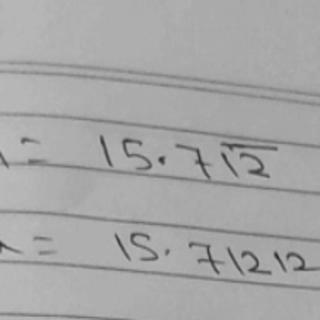 = 15.7\overline{12}
= 15.71212